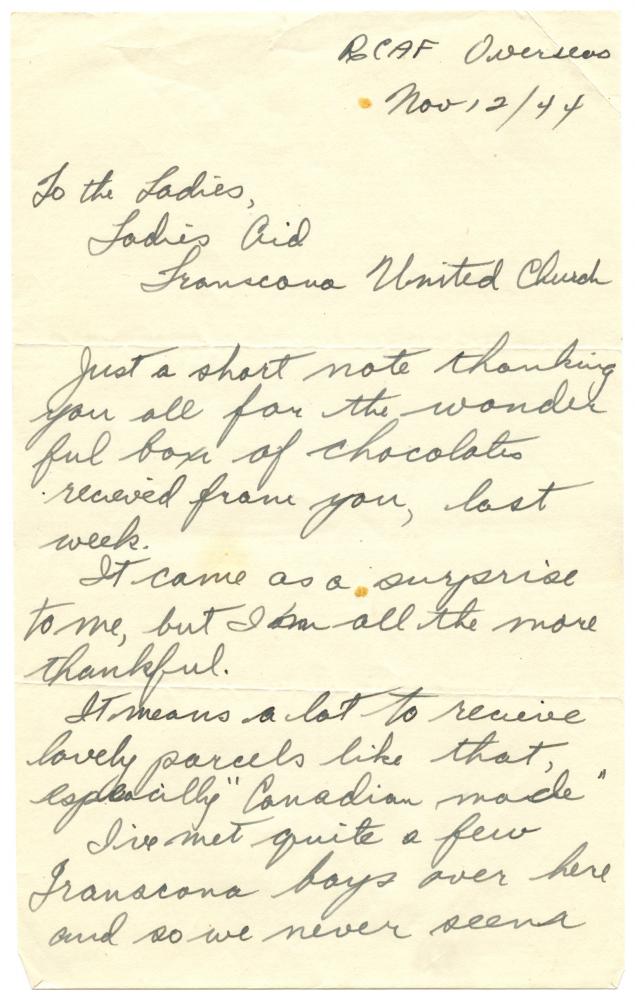 RCAF Overseas
Nov 12/44
To the Ladies,
Ladies Aid
Transcona United Church
Just a short note thanking
you all for the wonder
ful box of chocolates
recieved from you, last
week.
It came as a surprise
to me, but I am all the more
thankful.
It means a lot to recieve
lovely parcels like that,
especially "Canadian made"
I've met quite a few
Transcona boys over here
and so we never seem